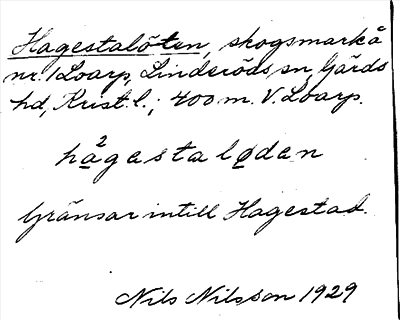 Hagestalöten, skogsmark å
nr. 1 Loarp, Linderöds sn, Gärds
hd, Krist. l.; 400 m. V. Loarp.
ha²gesta løden
Gränsar intill Hagestad.
Nils Nilsson 1929